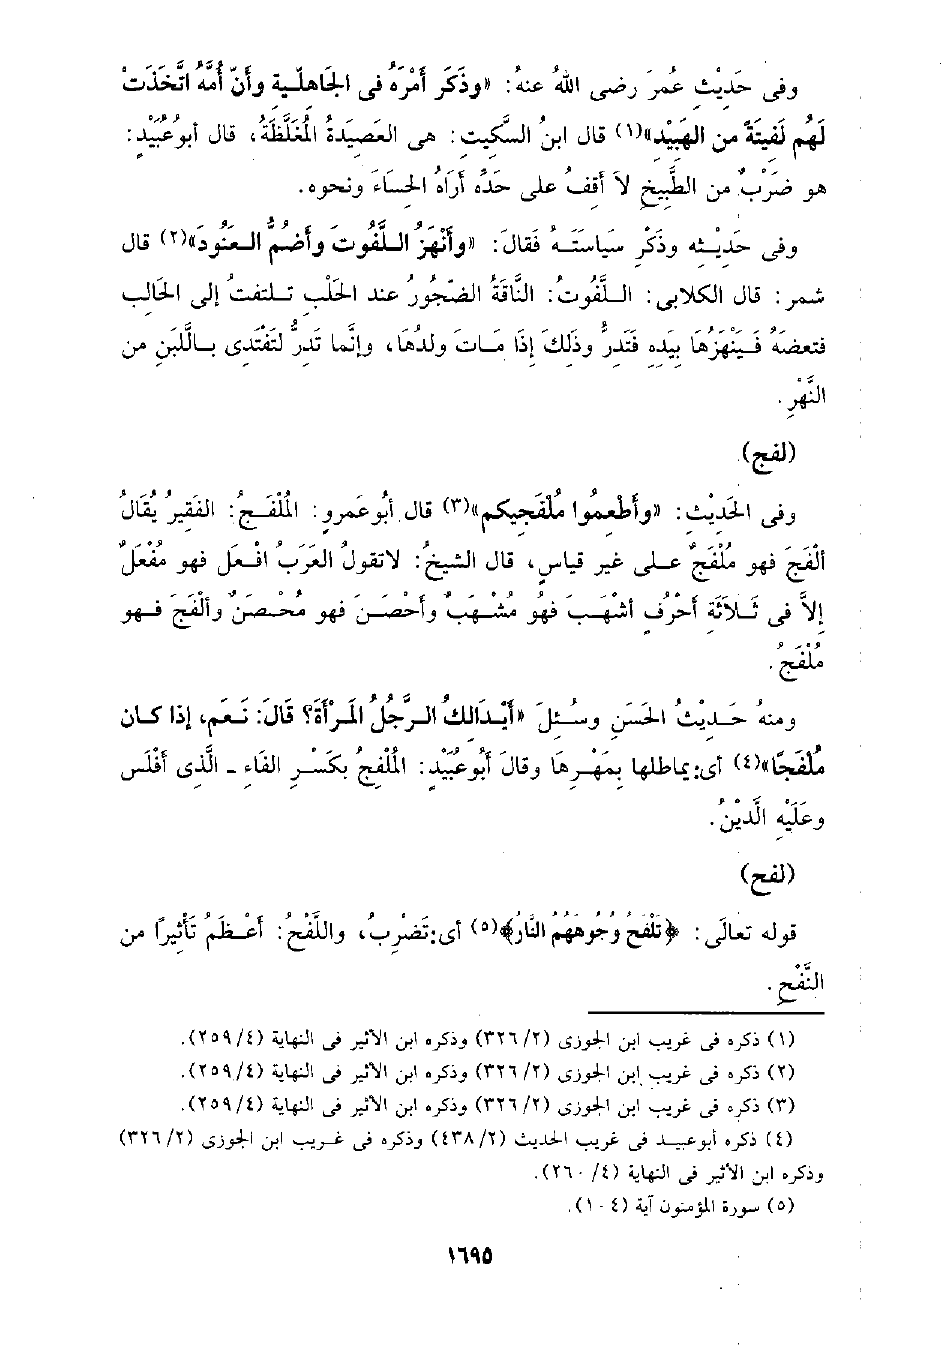 وفى حَدِيْثِ عُمرَ رضى اللهُ عنهُ: «وذَكَرَ أَمْرَهُ فى الجَاهلّيةِ وأَنّ أُمَّهُ اتَّخَذَتْ
لَهُم لَفيتَةً من الهَبِيْدِ»(١) قال ابنُ السَّكيتِ: هى العَصِيْدَةُ المُغَلَّظَةُ، قال أبوعُبَيْدٍ:
هو ضَرْبٌ من الطَّبِيخِ لاَ أَقفُ على حَدِّه أَرَاهُ الحسَاءَ ونحوه.
وفى حَدِيْثِه وذَكَرَ سيَاسَتَهُ فَقَالَ: «وأَنْهَزُ اللَّفُوتَ وأَضُمُّ العَنُودَ»(٢) قال
شمر: قال الكلابى: اللَّفُوتُ: النَّاقَةُ الضَّجُورُ عند الحَلْبِ تلتفتُ إلى الحَالِب
فتعضهُ فَيَنْهَزُهَا بِيَدِه فَتَدِرُّ وذَلكَ إذَا مَاتَ ولدُهَا، وإنَّما تَدرُّ لتَفْتَدى بالَّلبَنِ من
النَّهْزِ.
(لفج)
وفى الحَدِيْثِ: «وأَطْعِمُوا مُلْفَجِيكم»(٣) قال أَبُوعَمرو: المُلْفَجُ: الفَقيرُ يُقَالُ
أَلْفَجَ فهو مُلْفَجٌ على غير قياسٍ، قال الشيخُ: لاتقولُ العَرَبُ افْعَلَ فهو مُفْعَلٌ
إلاَّ فى ثَلاَثَةِ أَحْرُفٍ أَسْهَبَ فَهُو مُسْهَبٌ وأَحْصَنَ فهو مُحْصَنٌ وأَلْفَجَ فهو
مُلْفَجٌ.
ومنهُ حَدِيْثُ الحَسَنِ وسُئِلَ «أَيُدَالكُ الرَّجُلُ المَرْأَةَ؟ قَالَ: نَعَم، إذَا كَان
مُلْفَجًا»(٤) أى: يماطلها بِمَهْرِهَا وقالَ أَبُوعُبَيْدٍ: المُلْفِجُ بكَسْرِ الفَاءِ ـ الَّذى أَفْلَسَ
وعَلَيْهِ الَّديْنُ.
(لفح)
قوله تعالَى: ﴿تَلْفَحُ وُجُوهَهُمُ النَّارُ﴾(٥) أى: تَضْرِبُ، واللَّفْحُ: أَعْظَمُ تَأثيرًا من
النَّفْحِ.
(١) ذكره فى غريب ابن الجوزى (٣٢٦/٢) وذكره ابن الأثير فى النهاية (٢٥٩/٤).
(٢) ذكره فى غريب إبن الجوزى (٣٢٦/٢) وذكره ابن الأثير فى النهاية (٢٥٩/٤).
(٣) ذكره فى غريب ابن الجوزى (٣٢٦/٢) وذكره ابن الأثير فى النهاية (٢٥٩/٤).
(٤) ذكره أبوعبيد فى غريب الحديث (٤٣٨/٢) وذكره فى غريب ابن الجوزى (٣٢٦/٢)
وذكره ابن الأثير فى النهاية (٢٦٠/٤).
(٥) سورة المؤمنون آية (١٠٤).
١٦٩٥